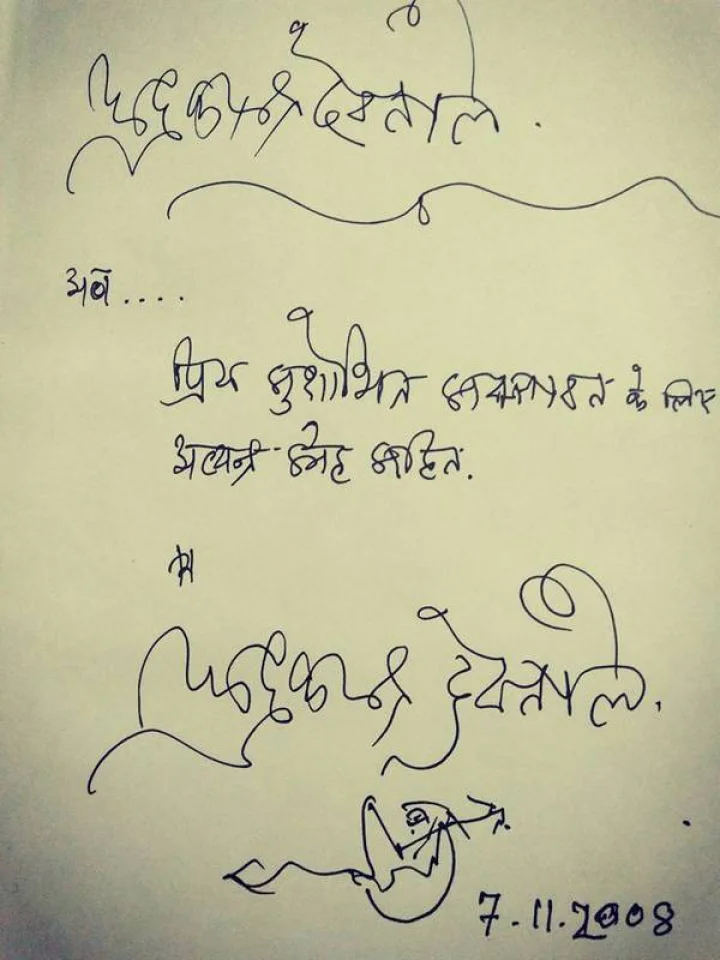 चन्द्रकान्त देवताले.
प्रिय सुशोभित सक्तावत के लिए
अत्यन्त स्नेह सहित.
चन्द्रकान्त देवताले.
7.11.2008